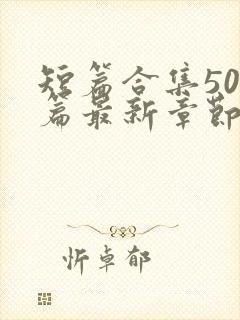 短篇合集50
篇最新章节
忻卓郁